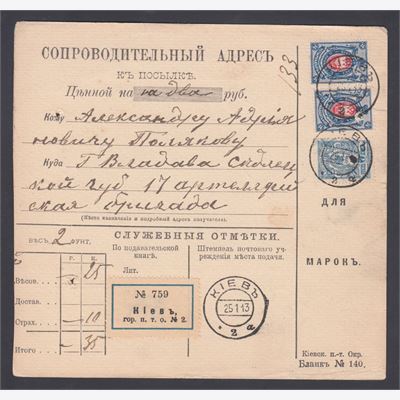 СОПРОВОДИТЕЛЬНЫЙ АДРЕСЪ
КЪ ПОСЫЛКѢ.
Цѣнной на на два руб.
133
Кому Александру Адрiя
новичу Полякову
Куда Г Владава Сѣдлец
кой губ 17 артеллерiй
ская бригада
(Мѣсто назначенія и подробный адресъ получателя).
ДЛЯ
МАРОКЪ.
СЛУЖЕБНЫЯ ОТМѢТКИ.
ВѢСЪ 2 ФУНТ.
По подавательской
книгѣ.
Штемпель почтоваго уч-
режденія мѣста подачи.
Р. К.
Лит.
Вѣсов. 25
Достав.
Страх. 10
Итого 35
№ 759
Кіевъ,
гор. п. т. о. № 2.
КІЕВЪ
25 1 13
* 2 а
Кіевск. п.-т. Окр.
Бланкъ № 140.